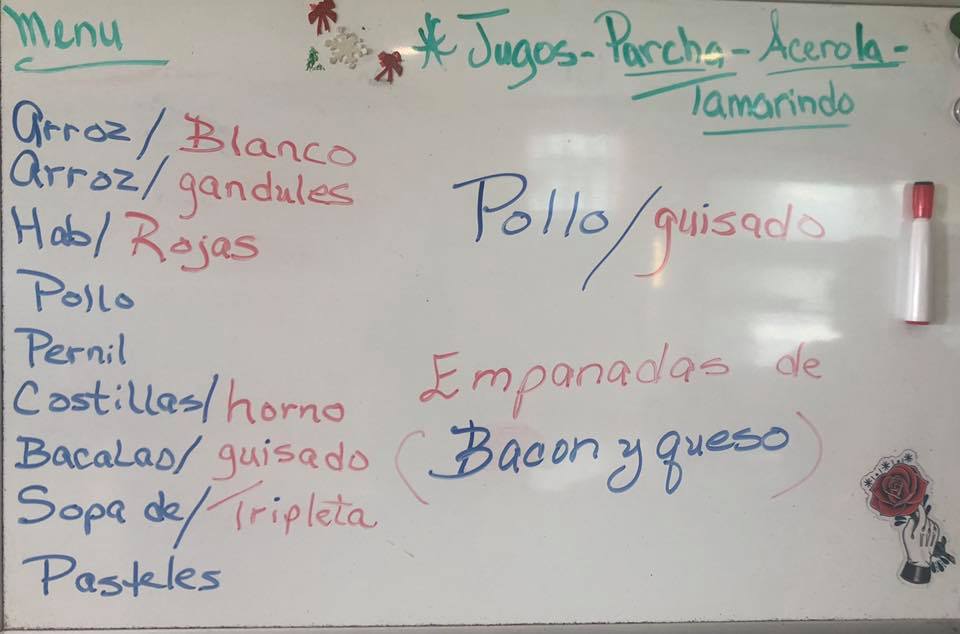 Menu
Arroz/Blanco
Arroz/gandules
Hab/Rojas
Pollo
Pernil
Costillas/horno
Bacalao/guisado
Sopa de/Tripleta
Pasteles
* Jugos-Parcha-Acerola-
Tamarindo
Pollo/guisado
Empanadas de
(Bacon y queso)